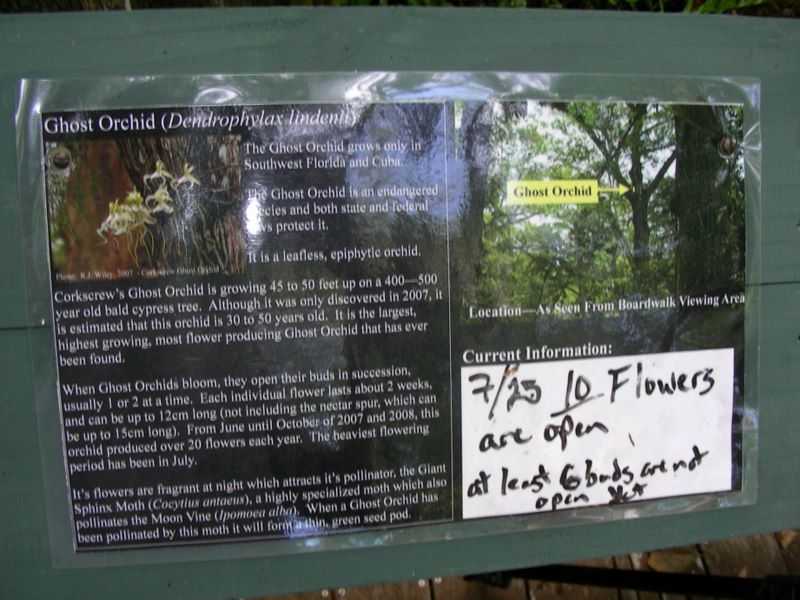 Ghost Orchid (Dendrophylax lindenii)
The Ghost Orchid grows only in
Southwest Florida and Cuba.
The Ghost Orchid is an endangered
species and both state and federal
laws protect it.
It is a leafless, epiphytic orchid.
Photo: R.J. Wiley, 2007 - Corkscrew Ghost Orchid
Corkscrew's Ghost Orchid is growing 45 to 50 feet up on a 400—500
year old bald cypress tree. Although it was only discovered in 2007, it
is estimated that this orchid is 30 to 50 years old. It is the largest,
highest growing, most flower producing Ghost Orchid that has ever
been found.
When Ghost Orchids bloom, they open their buds in succession,
usually 1 or 2 at a time. Each individual flower lasts about 2 weeks,
and can be up to 12cm long (not including the nectar spur, which can
be up to 15cm long). From June until October of 2007 and 2008, this
orchid produced over 20 flowers each year. The heaviest flowering
period has been in July.
It's flowers are fragrant at night which attracts it's pollinator, the Giant
Sphinx Moth (Cocytius antaeus), a highly specialized moth which also
pollinates the Moon Vine (Ipomoea alba). When a Ghost Orchid has
been pollinated by this moth it will form a thin, green seed pod.
Ghost Orchid
Location—As Seen From Boardwalk Viewing Area
Current Information:
7/25 10 Flowers
are open
at least 6 buds are not
open yet